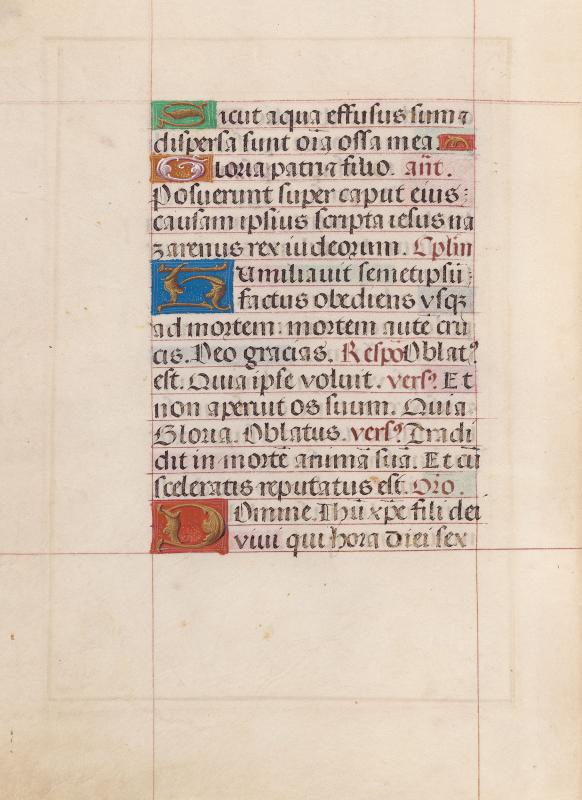 Sicut aqua effusus sum ⁊
dispersa sunt oīa ossa mea.
Gloria patri ⁊ filio. añt.
Posuerunt super caput eius
causam ipsius scripta iesus na
zarenus rex iudeorum. Cplm
Humiliauit semetipsū
factus obediens vsqꝫ
ad mortem: mortem autē cru
cis. Deo gracias. Respo Oblatꝰ
est. Quia ipse voluit. versꝰ Et
non aperuit os suum. Quia
Gloria. Oblatus. versꝰ Tradi
dit in mortē animā suā. Et cū
sceleratis reputatus est. Oro.
Domine Ihū xp̄e fili dei
viui qui hora diei sex